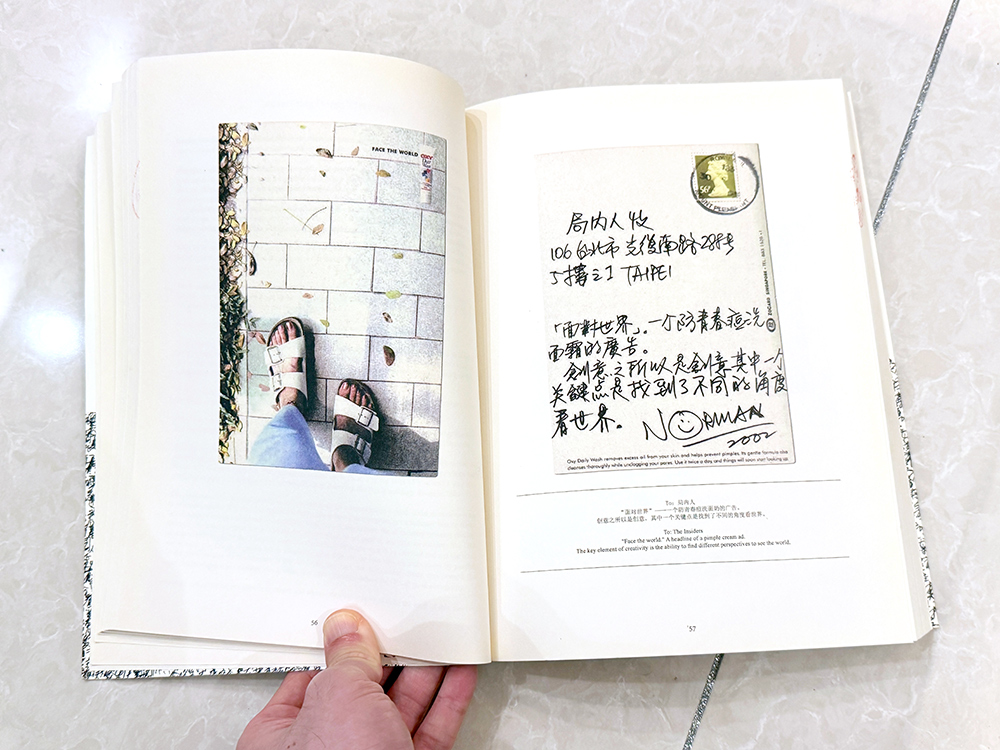 FACE THE WORLD
OXY
56
局内人 收
106台北市光復南路288号
5樓之1 TAIPEI
「面對世界」。一个防青春痘洗
面霜的廣告。
創意之所以是創意,其中一个
关鍵点是找到了不同的角度
看世界。
NORMAN
2002
ZOCARD SINGAPORE
Oxy Daily Wash removes excess oil from your skin and helps prevent pimples. Its gentle formula also
cleanses thoroughly while unclogging your pores. Use it twice a day and things will soon start looking up.
To: 局内人
“面对世界”——一个防青春痘洗面奶的广告。
创意之所以是创意，其中一个关键点是找到了不同的角度看世界。
To: The Insiders
"Face the world." A headline of a pimple cream ad.
The key element of creativity is the ability to find different perspectives to see the world.
56
57